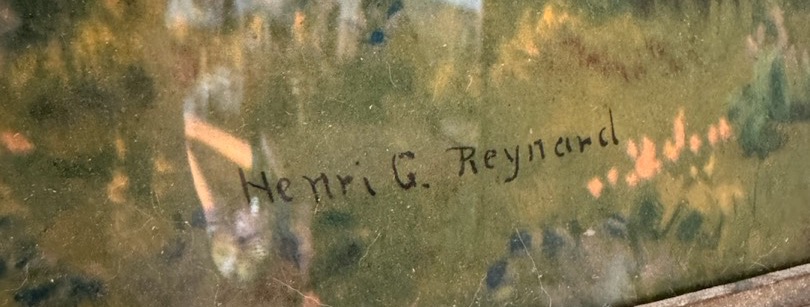 Henri G. Reynard